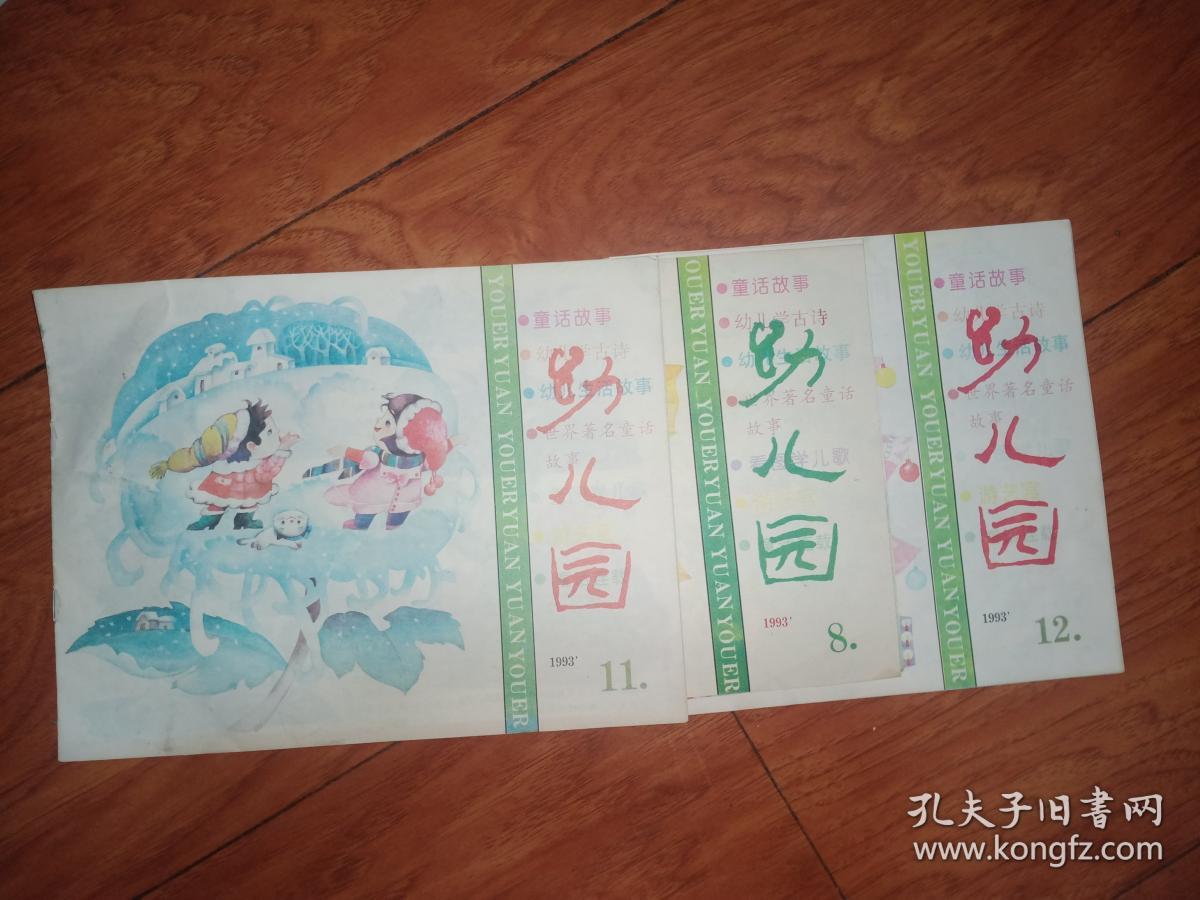 YOUERYUAN YOUERYUAN YUANYOUER
童话故事
幼儿学古诗
幼儿生活故事
世界著名童话
故事
幼儿园
1993'
11.
OUERYUAN YOUERYUAN YUANYOUER
童话故事
幼儿学古诗
幼儿生活故事
世界著名童话
故事
看图学儿歌
幼儿园
1993'
8.
YOUERYUAN YOUERYUAN YUANYOUER
童话故事
幼儿学古诗
幼儿生活故事
世界著名童话
故事
幼儿园
1993'
12.
孔夫子旧书网
www.kongfz.com